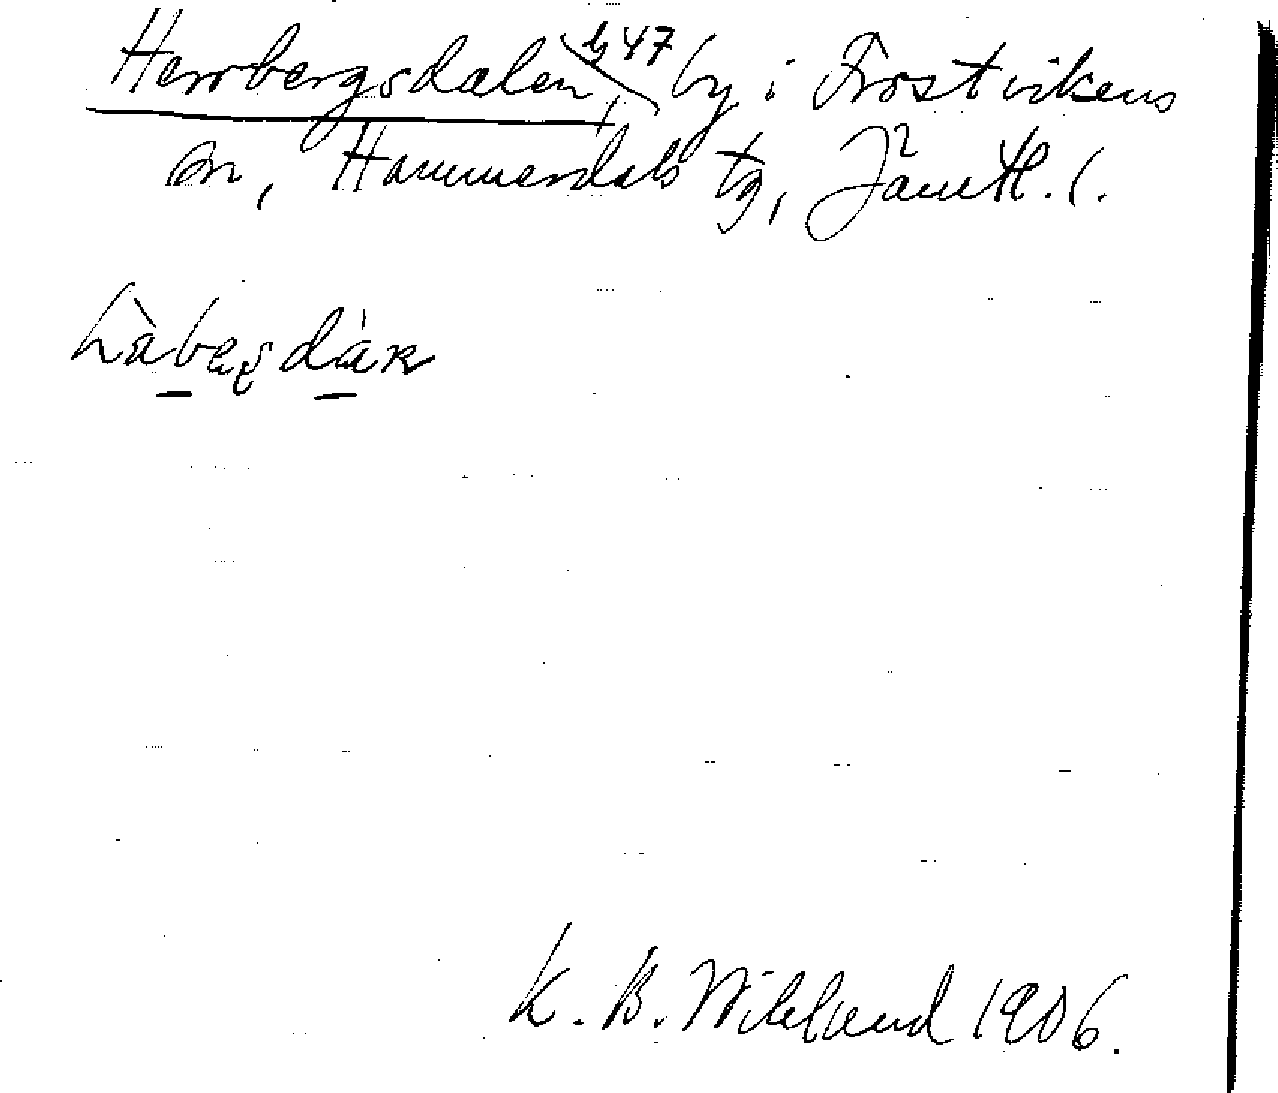 Herrbergsdalen, by 47 by i Frostvikens
sn, Hammerdals tg, Jämtl. l.
hàbegdàk
K. B. Wiklund 1906.